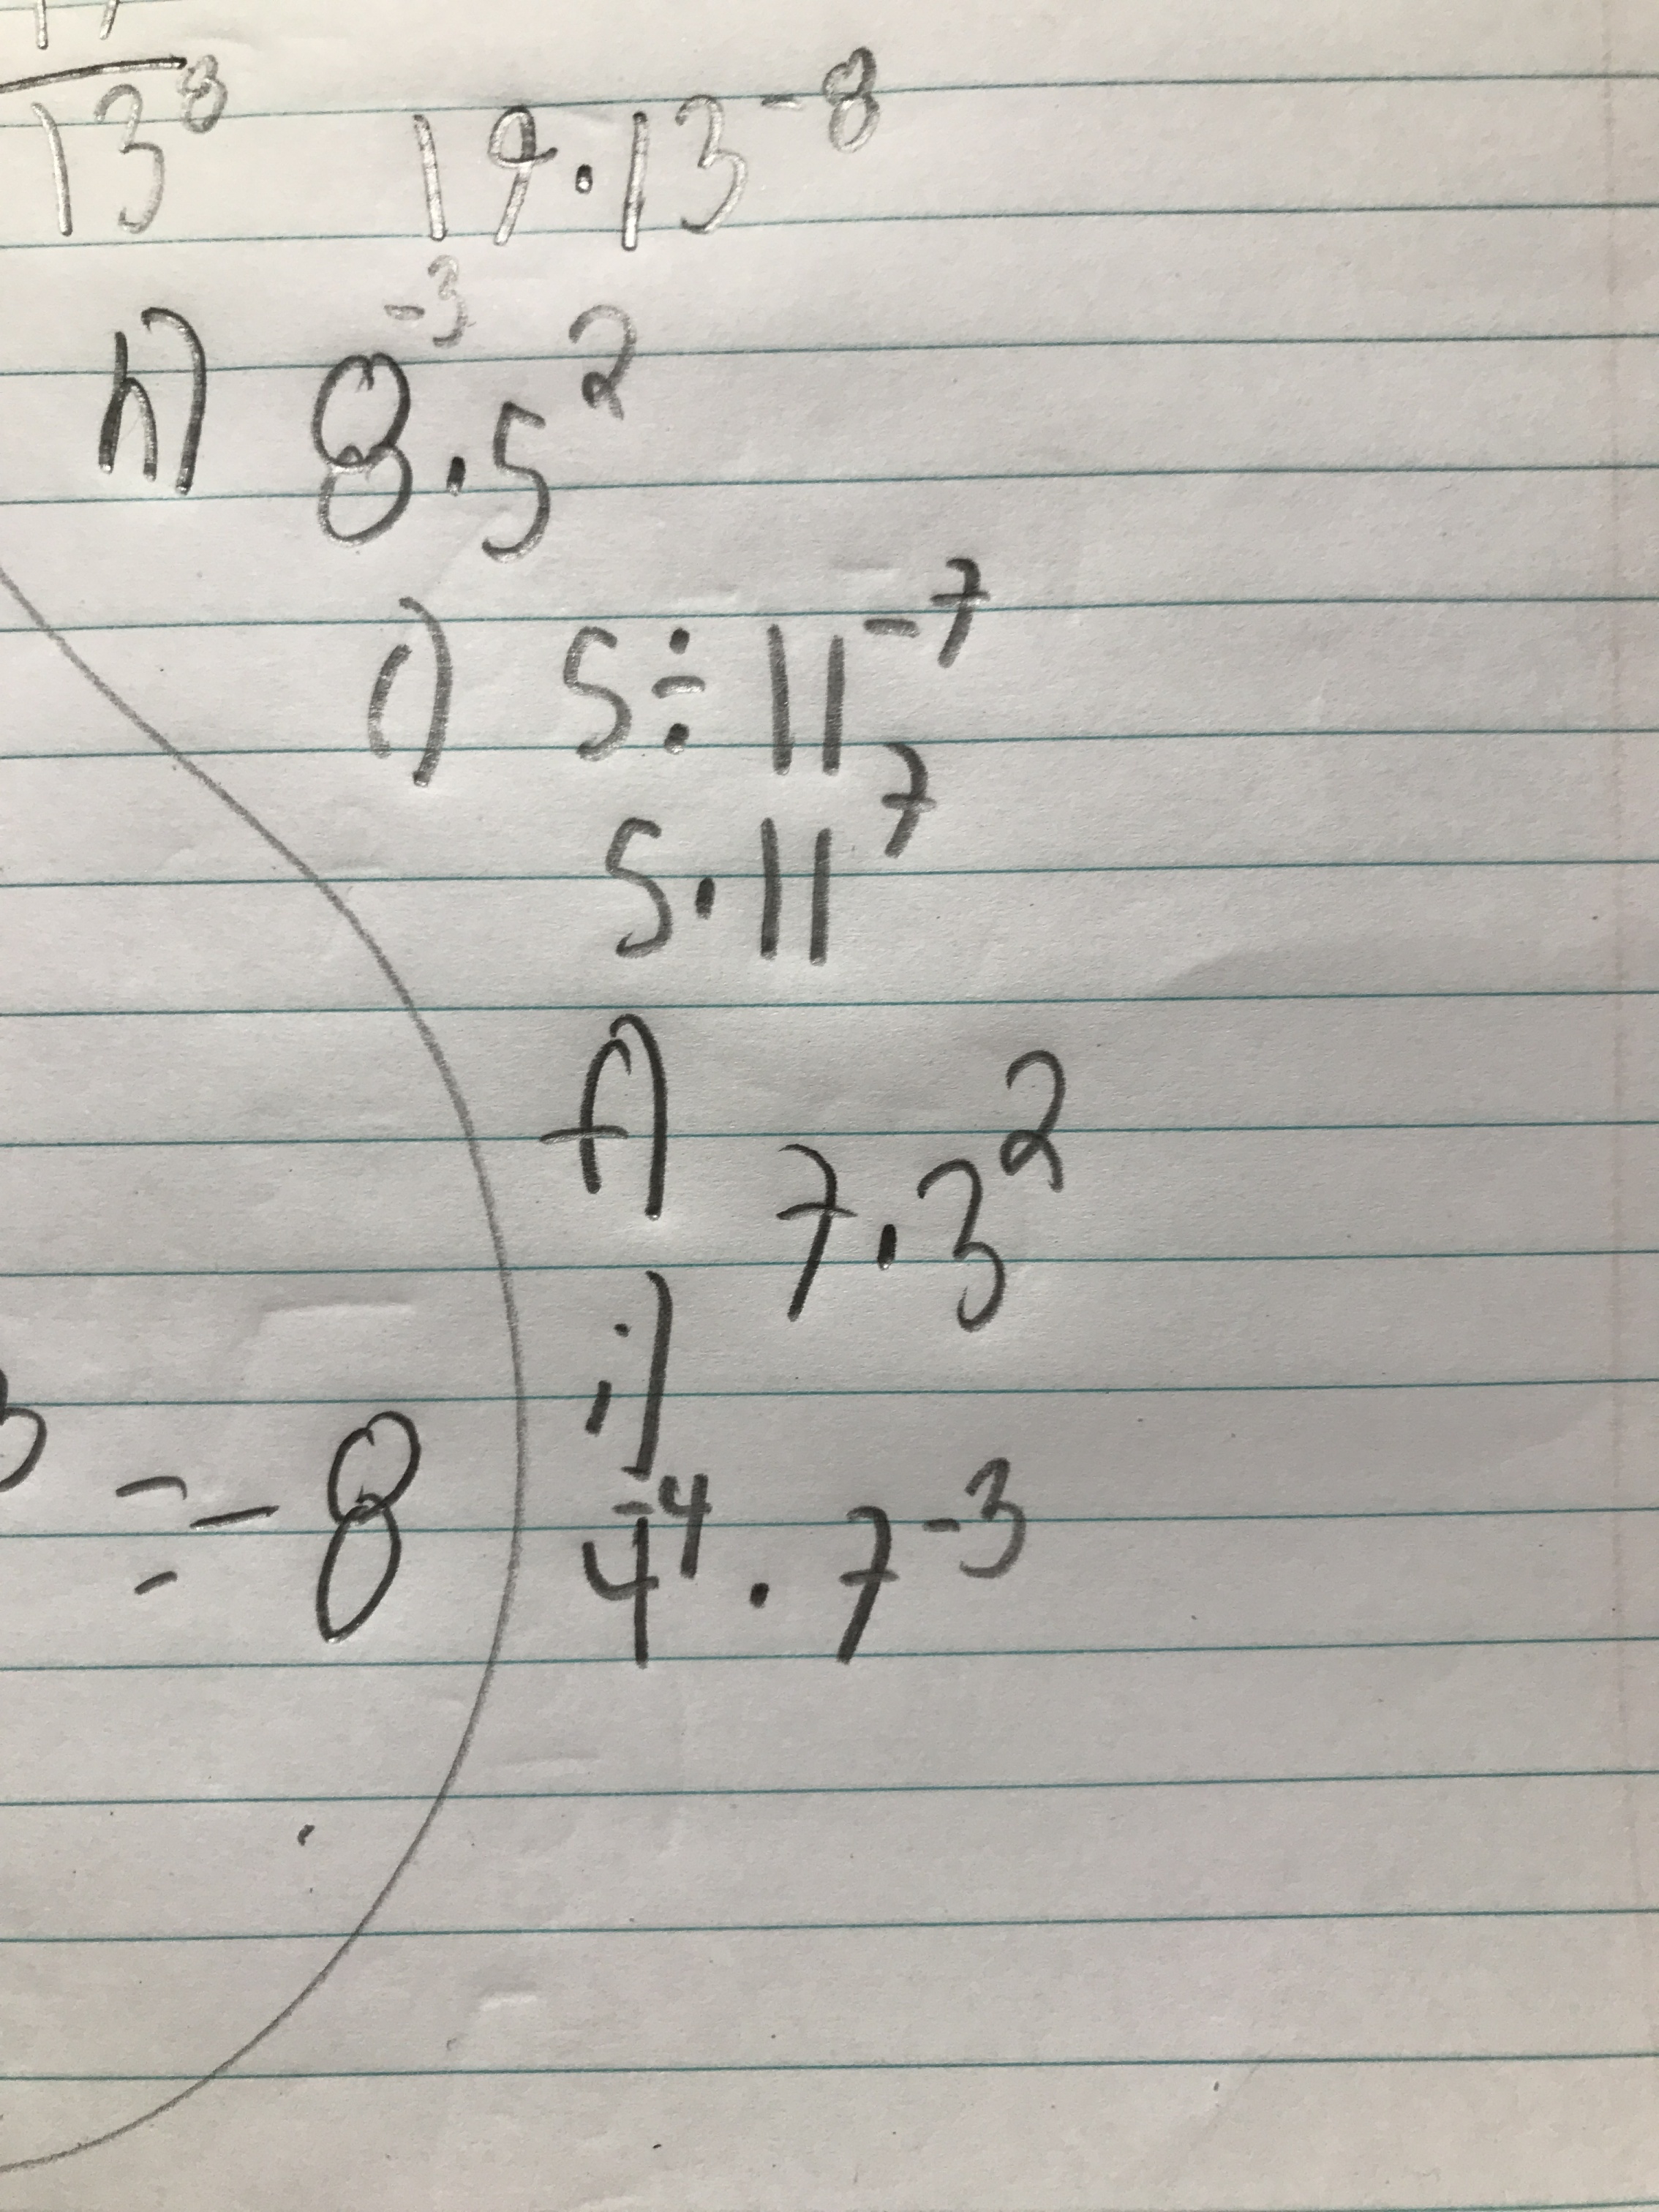 13⁸ 19·13⁻⁸
h) 8⁻³·5²
i) 5÷11⁻⁷
5·11⁷
f) 7·3²
i)
4⁻⁴·7⁻³
=-8